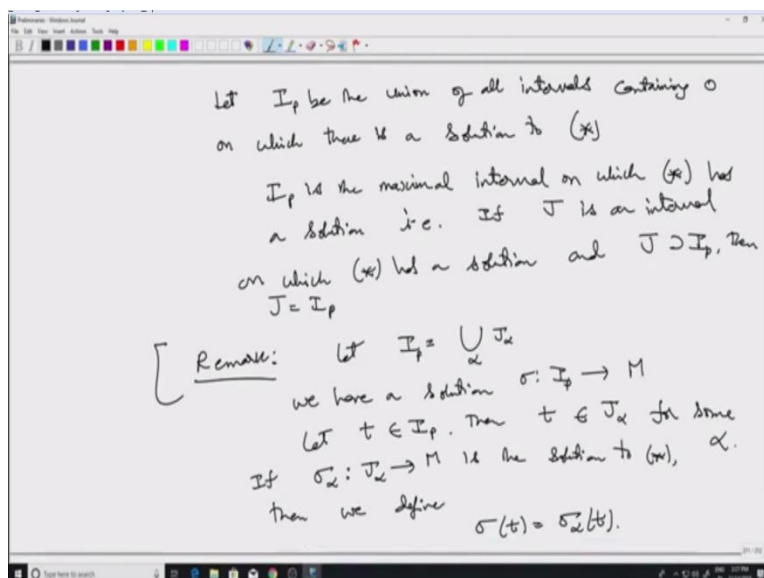 Preliminaries - Windows Journal
File Edit View Insert Actions Tools Help
Let I_p be the union of all intervals containing 0
on which there is a solution to (*)
I_p is the maximal interval on which (*) has
a solution i.e. If J is an interval
on which (*) has a solution and J ⊃ I_p, then
J = I_p
Remark: Let I_p = ⋃_α J_α
we have a solution σ: I_p → M
Let t ∈ I_p. Then t ∈ J_α for some
α.
If σ_α: J_α → M is the solution to (*),
then we define
σ(t) = σ_α(t).
Type here to search